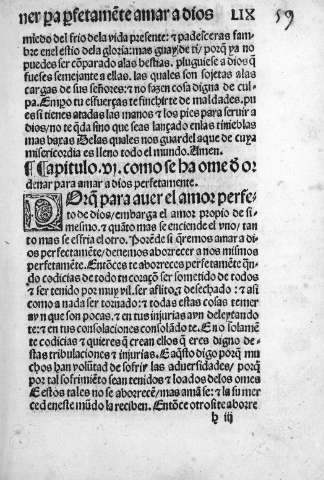 ner pa pfetamēte amar a dios LIX 59
miedo del frio dela vida presente: ⁊ padesceras fam
bre enel estio dela gloria: mas guay de ti/ porq̄ ya no
puedes ser cōparado alas bestias. pluguiese a dios q̄
fueses semejante a ellas. las quales son sojetas alas
cargas de sus señores: ⁊ no fazen cosa digna de cul-
pa. Empo tu esfuerças te finchirte de maldades. pu
es si tienes atadas las manos ⁊ los pies para seruir a
dios/ no te q̄da sino que seas lançado enlas tinieblas
mas baxas Delas quales nos guardel aque de cuya
misericordia es lleno todo el mundo. Amen.
¶ Capitulo. vj. como se ha ome d̄ or
denar para amar a dios perfetamente.
POrq̄ para auer el amor perfe-
to de dios/ embarga el amor propio de si
mesmo. ⁊ quāto mas se enciende el vno/ tan
to mas se esfria el otro. Porēde si q̄remos amar a di-
os perfectamēte/ deuemos aborrecer a nos mismos
perfetamēte. Entōces te aborreces perfetamēte qn̄-
do codicias de todo tu coraçō ser sometido de todos
⁊ ser tenido por muy vil. ser aflito ⁊ desechado: ⁊ asi
como a nada ser tornado: ⁊ todas estas cosas temer
ayn que son pocas. ⁊ en tus injurias ayn deleytando
te: ⁊ en tus consolaciones consolādo te. E no solamē
te codicias ⁊ quieres q̄ crean ellos q̄ eres digno de-
stas tribulaciones ⁊ injurias. E aq̄sto digo porq̄ mu
chos han volūtad de sofrir las aduersidades/ porq̄
por tal sofrimiēto sean tenidos ⁊ loados delos omes
E estos tales no se aborrecē/ mas amā se: ⁊ la su mer
ced eneste mūdo la reciben. Entōce otrosi te aborre
h iij